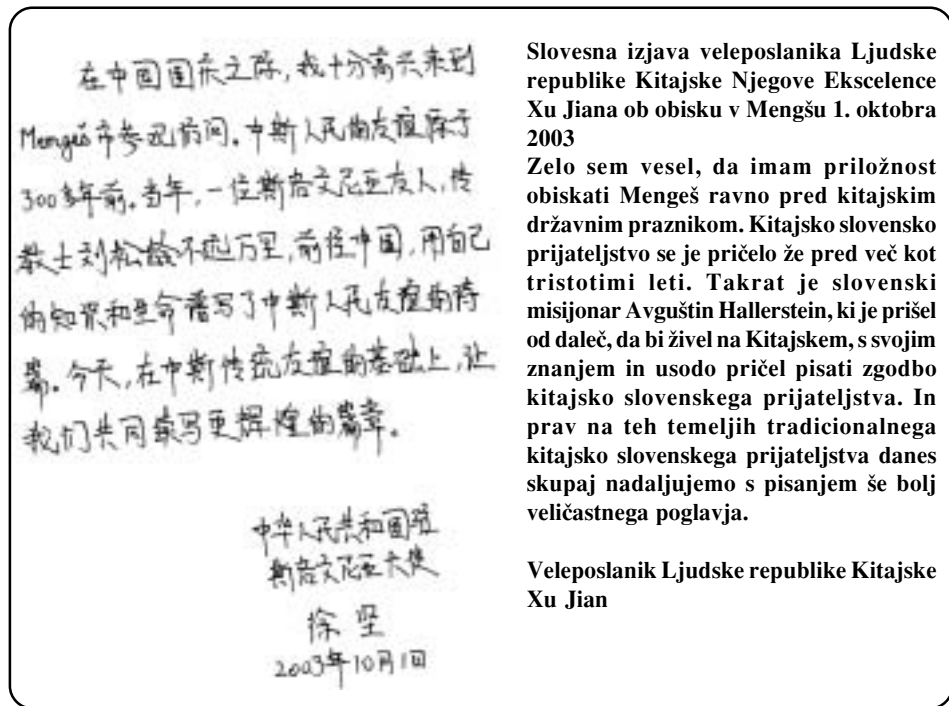 在中国国庆之际，我十分高兴来到
Mengeš市参观访问。中斯人民的友谊源于
300多年前。当年，一位斯洛文尼亚友人，传
教士刘松龄不远万里，前往中国，用自己
的知识和生命谱写了中斯人民友谊的诗
篇。今天，在中斯传统友谊的基础上，让
我们共同续写更辉煌的篇章。
中华人民共和国驻
斯洛文尼亚大使
徐坚
2003年10月1日
Slovesna izjava veleposlanika Ljudske
republike Kitajske Njegove Ekscelence
Xu Jiana ob obisku v Mengšu 1. oktobra
2003
Zelo sem vesel, da imam priložnost
obiskati Mengeš ravno pred kitajskim
državnim praznikom. Kitajsko slovensko
prijateljstvo se je pričelo že pred več kot
tristotimi leti. Takrat je slovenski
misijonar Avguštin Hallerstein, ki je prišel
od daleč, da bi živel na Kitajskem, s svojim
znanjem in usodo pričel pisati zgodbo
kitajsko slovenskega prijateljstva. In
prav na teh temeljih tradicionalnega
kitajsko slovenskega prijateljstva danes
skupaj nadaljujemo s pisanjem še bolj
veličastnega poglavja.
Veleposlanik Ljudske republike Kitajske
Xu Jian